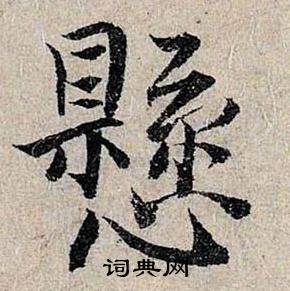 懸
词典网